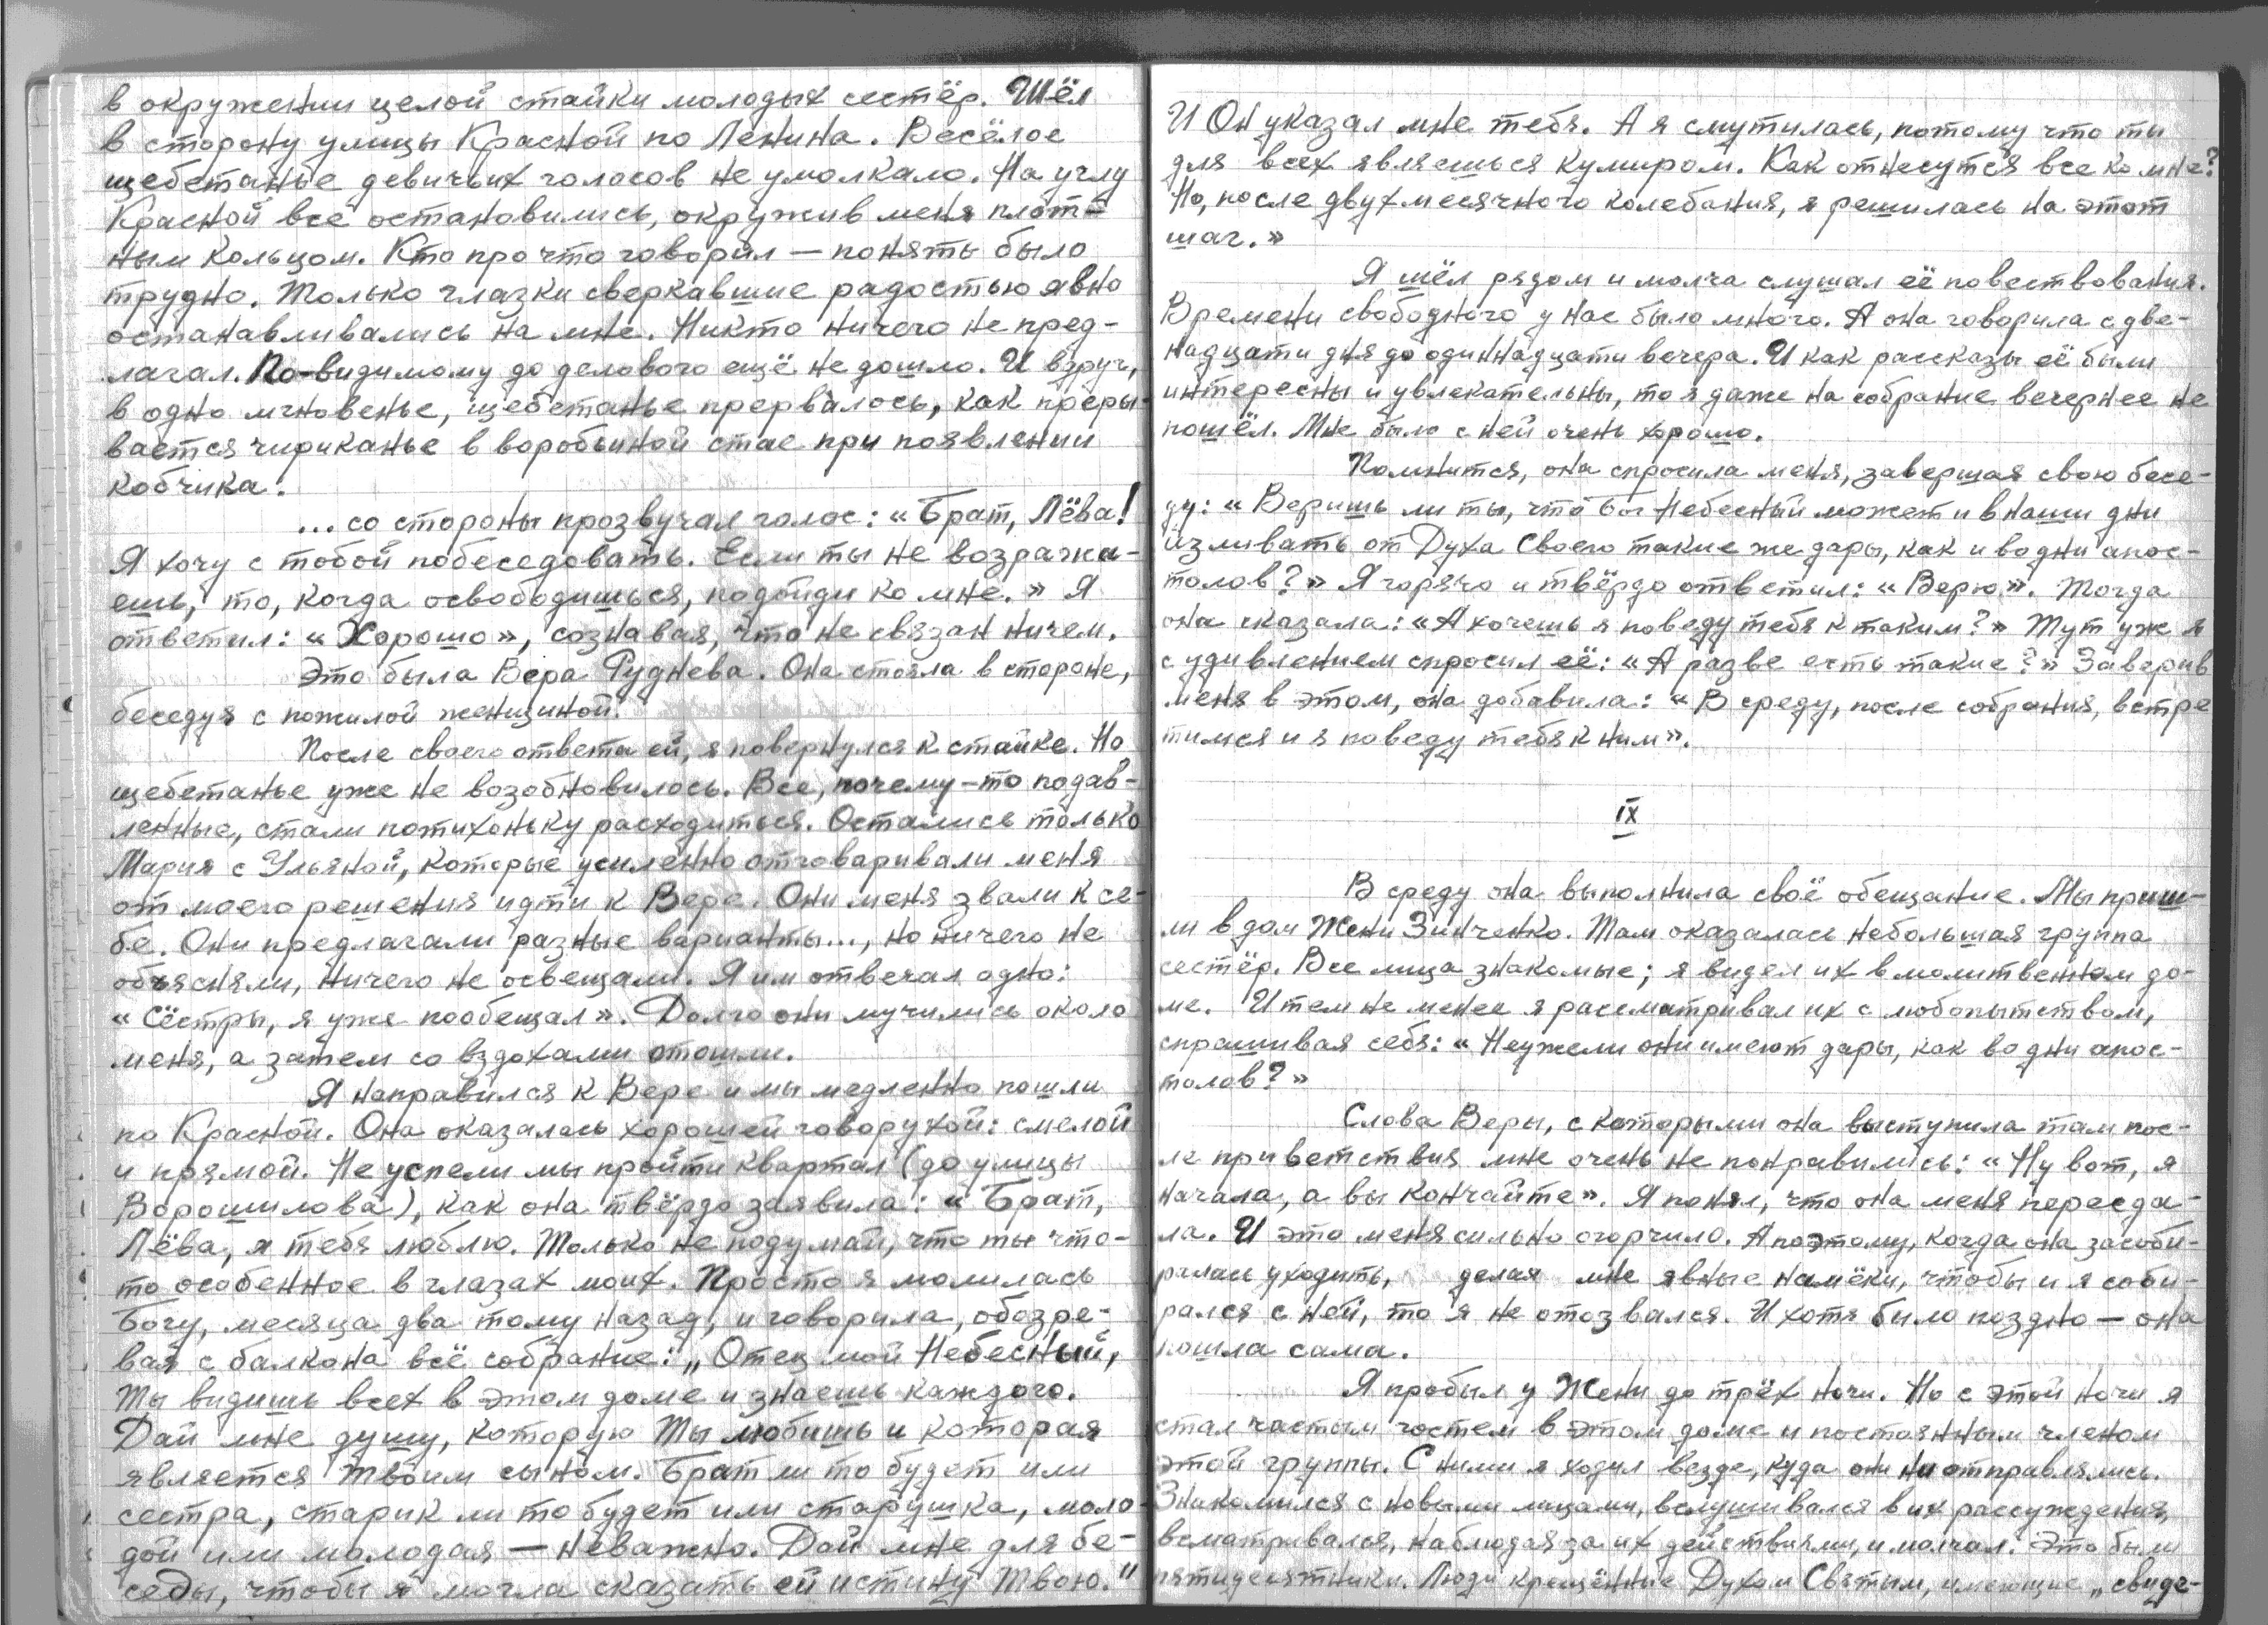 в окружении целой стайки молодых сестёр. Шёл
в сторону улицы Красной по Ленина. Весёлое
щебетанье девичьих голосов не умолкало. На углу
Красной все остановились, окружив меня плот-
ным кольцом. Кто про что говорил — понять было
трудно. Только глазки сверкавшие радостью явно
останавливались на мне. Никто ничего не пред-
лагал. По-видимому до делового ещё не дошло. И вдруг,
в одно мгновенье, щебетанье прервалось, как преры-
вается чириканье в воробьиной стае при появлении
кобчика.
...со стороны прозвучал голос: «Брат, Лёва!
Я хочу с тобой побеседовать. Если ты не возража-
ешь, то, когда освободишься, подойди ко мне.» Я
ответил: «Хорошо», сознавая, что не связан ничем.
Это была Вера Руднева. Она стояла в стороне,
беседуя с пожилой женщиной.
После своего ответа ей, я повернулся к стайке. Но
щебетанье уже не возобновилось. Все, почему-то подав-
ленные, стали потихоньку расходиться. Остались только
Мария с Ульяной, которые усиленно отговаривали меня
от моего решения идти к Вере. Они меня звали к се-
бе. Они предлагали разные варианты..., но ничего не
объясняли, ничего не освещали. Я им отвечал одно:
«Сёстры, я уже пообещал». Долго они мучились около
меня, а затем со вздохами отошли.
Я направился к Вере и мы медленно пошли
по Красной. Она оказалась хорошей говорухой: смелой
и прямой. Не успели мы пройти квартал (до улицы
Ворошилова), как она твёрдо заявила: «Брат,
Лёва, я тебя люблю. Только не подумай, что ты что-
то особенное в глазах моих. Просто я молилась
Богу, месяца два тому назад, и говорила, обозре-
вая с балкона всё собрание: „Отец мой Небесный,
Ты видишь всех в этом доме и знаешь каждого.
Дай мне душу, которую Ты любишь и которая
является Твоим сыном. Брат ли то будет или
сестра, старик ли то будет или старушка, моло-
дой или молодая — неважно. Дай мне для бе-
седы, чтобы я могла сказать ей истину Твою."
И Он указал мне тебя. А я смутилась, потому что ты
для всех являешься кумиром. Как отнесутся все ко мне?
Но, после двухмесячного колебания, я решилась на этот
шаг.»
Я шёл рядом и молча слушал её повествования.
Времени свободного у нас было много. А она говорила с две-
надцати дня до одиннадцати вечера. И как рассказы её были
интересны и увлекательны, то я даже на собрание вечернее не
пошёл. Мне было с ней очень хорошо.
Помнится, она спросила меня, завершая свою бесе-
ду: «Веришь ли ты, что Бог Небесный может и в наши дни
изливать от Духа Своего такие же дары, как и во дни апос-
толов?» Я горячо и твёрдо ответил: «Верю». Тогда
она сказала: «А хочешь я поведу тебя к таким?» Тут уже я
с удивлением спросил её: «А разве есть такие?» Заверив
меня в этом, она добавила: «В среду, после собрания, встре
тимся и я поведу тебя к ним».
IX
В среду она выполнила своё обещание. Мы приш-
ли в дом Жени Зинченко. Там оказалась небольшая группа
сестёр. Все лица знакомые; я видел их в молитвенном до-
ме. И тем не менее я рассматривал их с любопытством,
спрашивая себя: «Неужели они имеют дары, как во дни апос-
толов?»
Слова Веры, с которыми она выступила там пос-
ле приветствия мне очень не понравились: «Ну вот, я
начала, а вы кончайте». Я понял, что она меня переда-
ла. И это меня сильно огорчило. А поэтому, когда она засоби-
ралась уходить, делая мне явные намёки, чтобы и я соби-
рался с ней, то я не отозвался. И хотя было поздно — она
пошла сама.
Я пробыл у Жени до трёх ночи. Но с этой ночи я
стал частым гостем в этом доме и постоянным членом
этой группы. С ними я ходил везде, куда они ни отправлялись.
Знакомился с новыми лицами, вслушивался в их рассуждения,
всматривался, наблюдая за их действиями, и молчал. Это были
пятидесятники. Люди крещённые Духом Святым, имеющие „свиде-